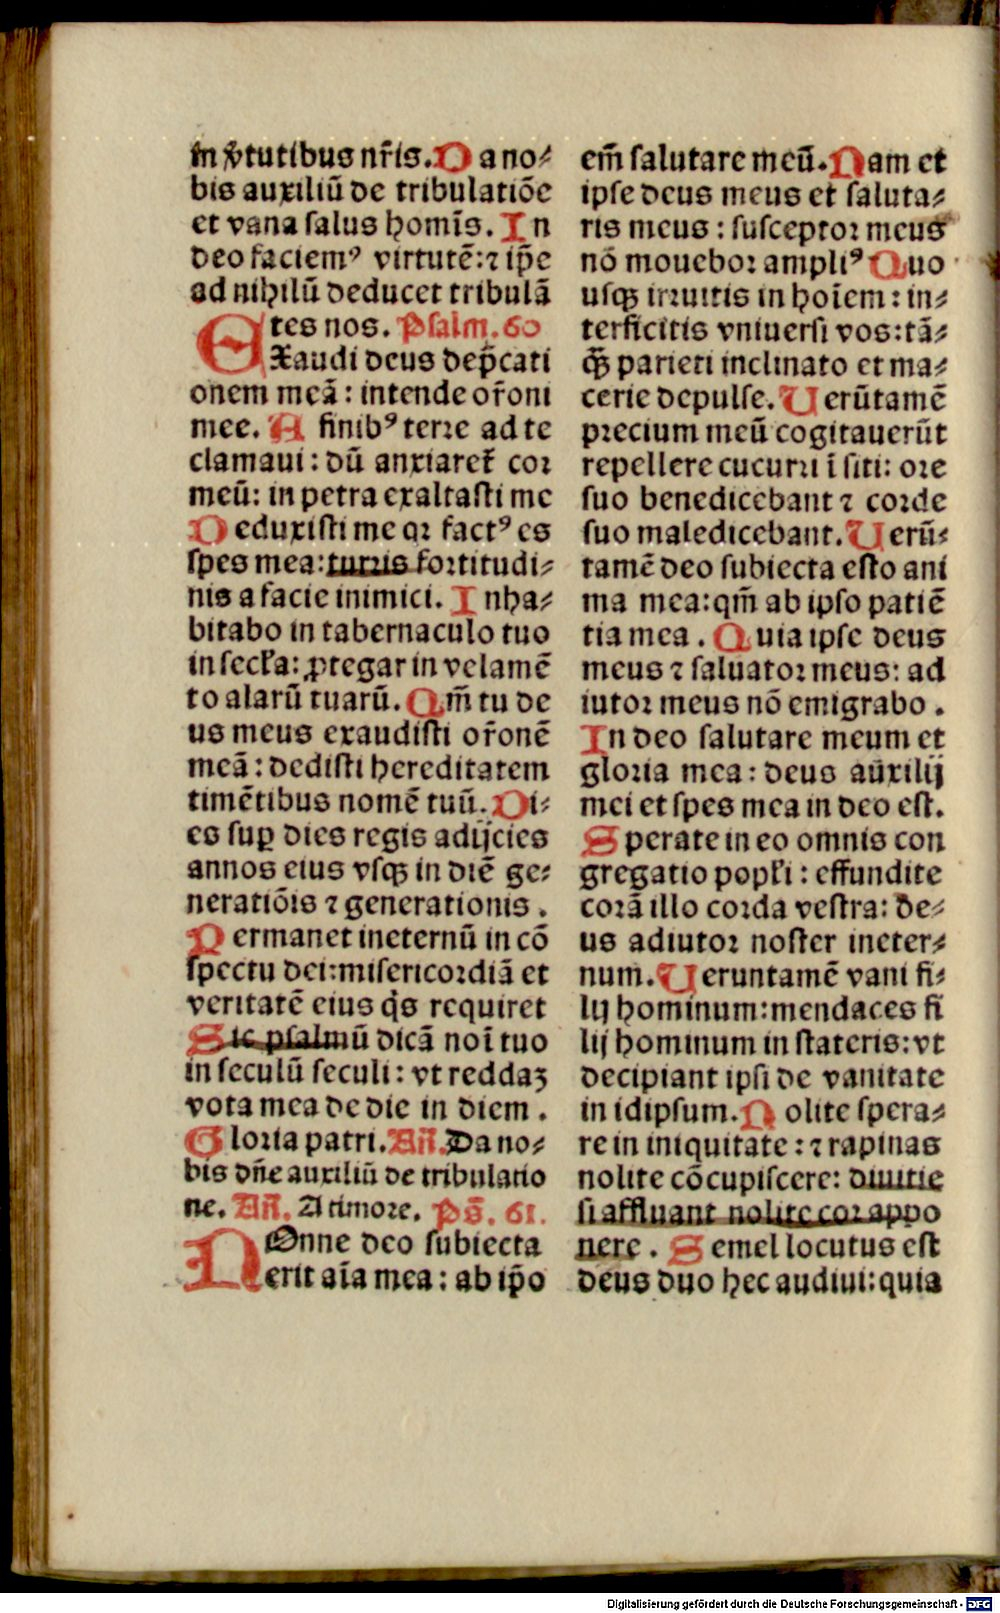 in v̾tutibus nr̄is. Da no⸗
bis auxiliū de tribulatiōe
et vana salus homīs. In
deo faciemꝰ virtutē: ⁊ ip̄e
ad nihilū deducet tribulā
tes nos. Psalm. 60
EXaudi deus dep̄cati
onem meā: intende or̄oni
mee. A finibꝰ terre ad te
clamaui: dū anxiaret᷑ cor
meū: in petra exaltasti me
Deduxisti me qꝛ factꝰ es
spes mea: turris fortitudi⸗
nis a facie inimici. Inha⸗
bitabo in tabernaculo tuo
in secła: ꝓtegar in velamē
to alarū tuarū. Qm̄ tu de
us meus exaudisti or̄onē
meā: dedisti hereditatem
timētibus nomē tuū. Di⸗
es suꝑ dies regis adijcies
annos eius vsqꝫ in diē ge⸗
neratiōis ⁊ generationis.
Permanet ineternū in cō
spectu dei: misericordiā et
veritatē eius q̇s requiret
Sic psalmū dicā noī tuo
in seculū seculi: vt reddaꝫ
vota mea de die in diem.
Gloria patri. Añ. Da no⸗
bis dn̄e auxiliū de tribulatio
ne. Añ. A timore. Ps̄. 61.
NOnne deo subiecta
erit aīa mea: ab ip̄o
em̄ salutare meū. Nam et
ipse deus meus et saluta⸗
ris meus: susceptor meus
nō mouebor ampliꝰ Quo
usqꝫ irruitis in hoīem: in⸗
terficitis vniuersi vos: tā⸗
qꝫ̄ parieti inclinato et ma⸗
cerie depulse. Uerūtamē
precium meū cogitauerūt
repellere cucurri ī siti: ore
suo benedicebant ⁊ corde
suo maledicebant. Uerū⸗
tamē deo subiecta esto ani
ma mea: qm̄ ab ipso patiē
tia mea. Quia ipse deus
meus ⁊ saluator meus: ad
iutor meus nō emigrabo.
In deo salutare meum et
gloria mea: deus auxilij
mei et spes mea in deo est.
Sperate in eo omnis con
gregatio popłi: effundite
corā illo corda vestra: de⸗
us adiutor noster ineter⸗
num. Ueruntamē vani fi⸗
lij hominum: mendaces fi
lij hominum in stateris: vt
decipiant ipsi de vanitate
in idipsum. Nolite spera⸗
re in iniquitate: ⁊ rapinas
nolite cōcupiscere: diuitie
si affluant nolite cor appo
nere. Semel locutus est
deus duo hec audiui: quia
Digitalisierung gefördert durch die Deutsche Forschungsgemeinschaft - DFG